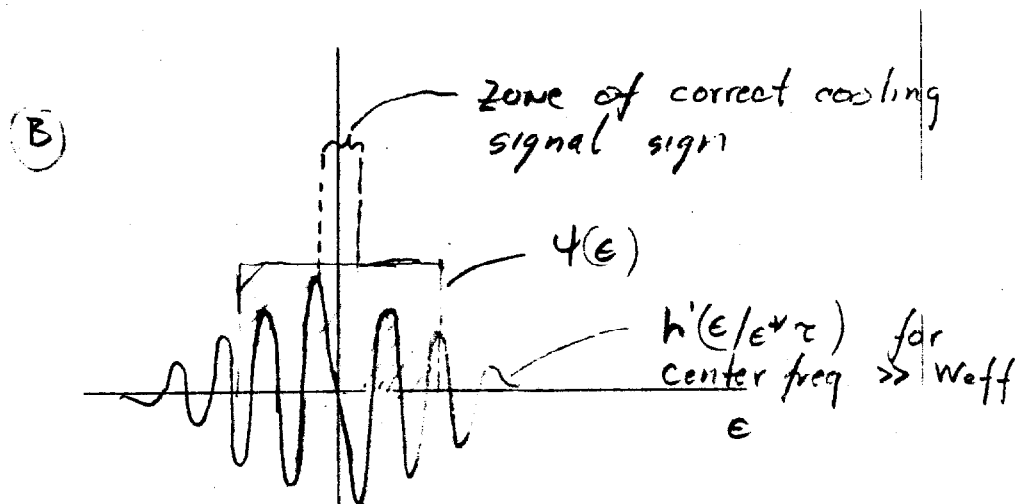 (B)
Zone of correct cooling
signal sign
ψ(ϵ)
h'(ϵ/ϵ*τ) for
center freq >> Weff
ϵ